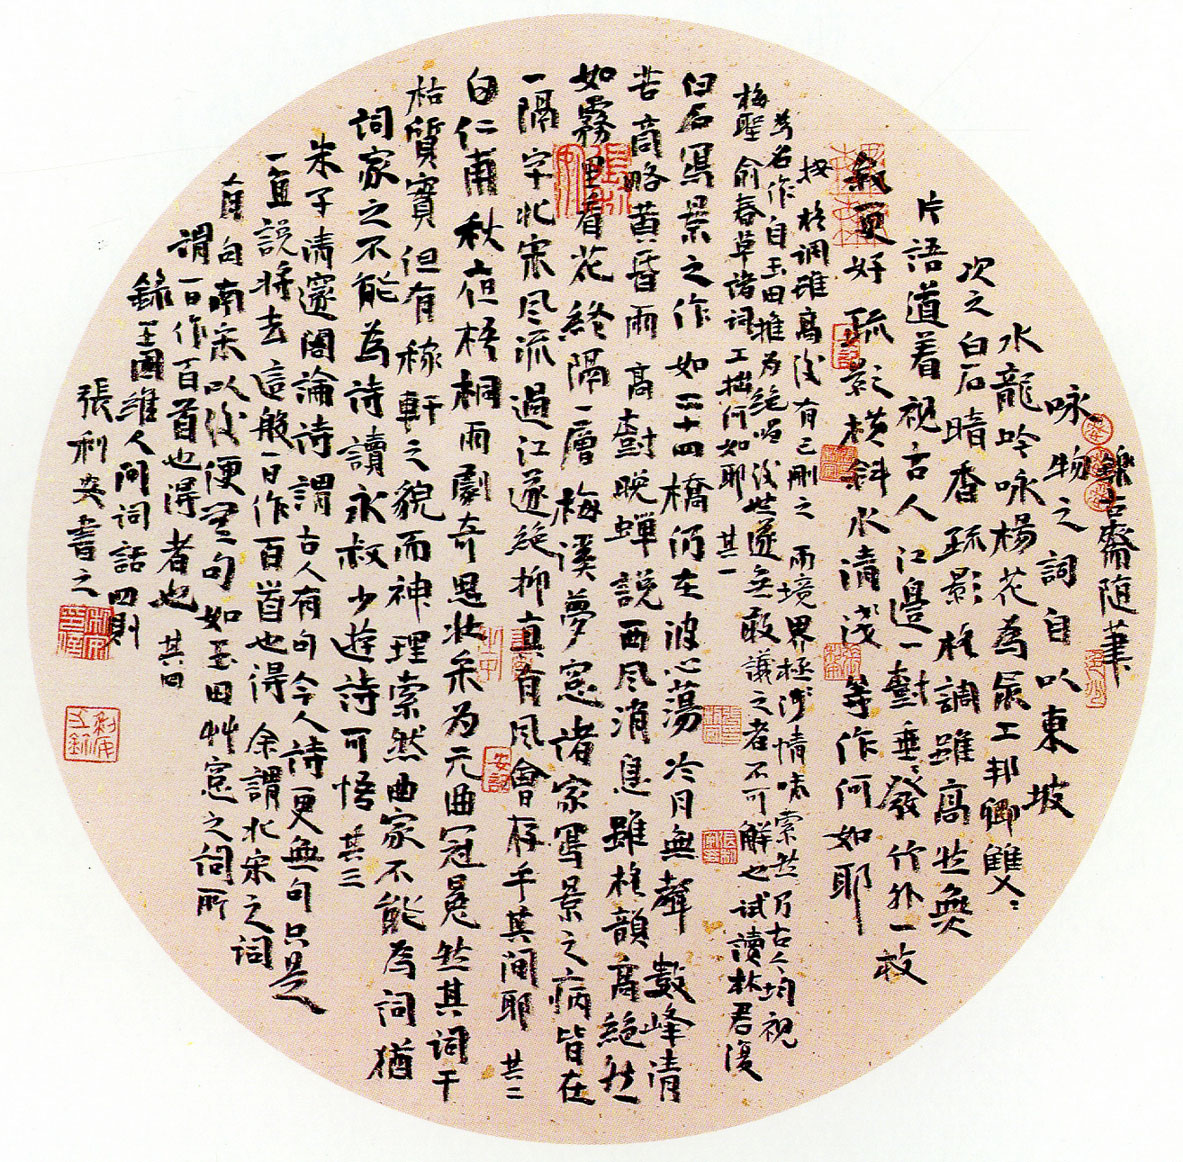 古齋随筆
咏物之詞自以東坡
水龍吟咏楊花為最工邦卿雙〻
次之白石暗香疏影格調雖高然無
片語道着視古人江邊一樹垂〻發竹外一枝
幾更好疏影横斜水清淺等作何如耶
按格調雖高後有己刪之而境界極淺情味索然乃古今均視
為名作自玉田推為絶唱後世遂無敢議之者不可解也試讀林君復
梅聖俞春草諸詞工拙何如耶 其一
白石寫景之作如二十四橋仍在波心蕩冷月無聲數峰清
苦商略黄昏雨高樹晚蟬説西風消息雖格韻高絶然
如霧裏看花終隔一層梅溪夢窗諸家寫景之病皆在
一隔字北宋風流過江遂絶抑真有風會存乎其間耶 其二
白仁甫秋夜梧桐雨劇奇思壯采為元曲冠冕然其詞干
枯質實但有稼軒之貌而神理索然曲家不能為詞猶
詞家之不能為詩讀永叔少游詩可悟 其三
朱子清邃閣論詩謂古人有句今人詩更無句只是
一直説将去這般一日作百首也得余謂北宋之詞
有句南宋以後便無句如玉田艸窗之詞所
謂一日作百首也得者也 其四
錄王國維人間詞話四則
張利安書之